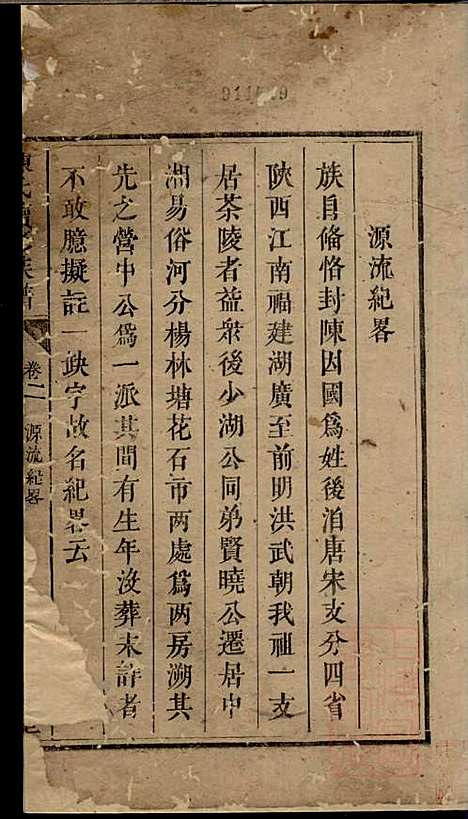 源流紀畧
族自偹恪封陳因國爲姓後洎唐宋支分四省
陝西江南福建湖廣至前明洪武朝我祖一支
居茶陵者益衆後少湖公同弟賢曉公遷居中
湘易俗河分楊林塘花石市两處爲两房溯其
先之營中公爲一派其間有生年没葬未詳者
不敢臆擬註一缺字故名紀畧云
卷二 源流紀畧